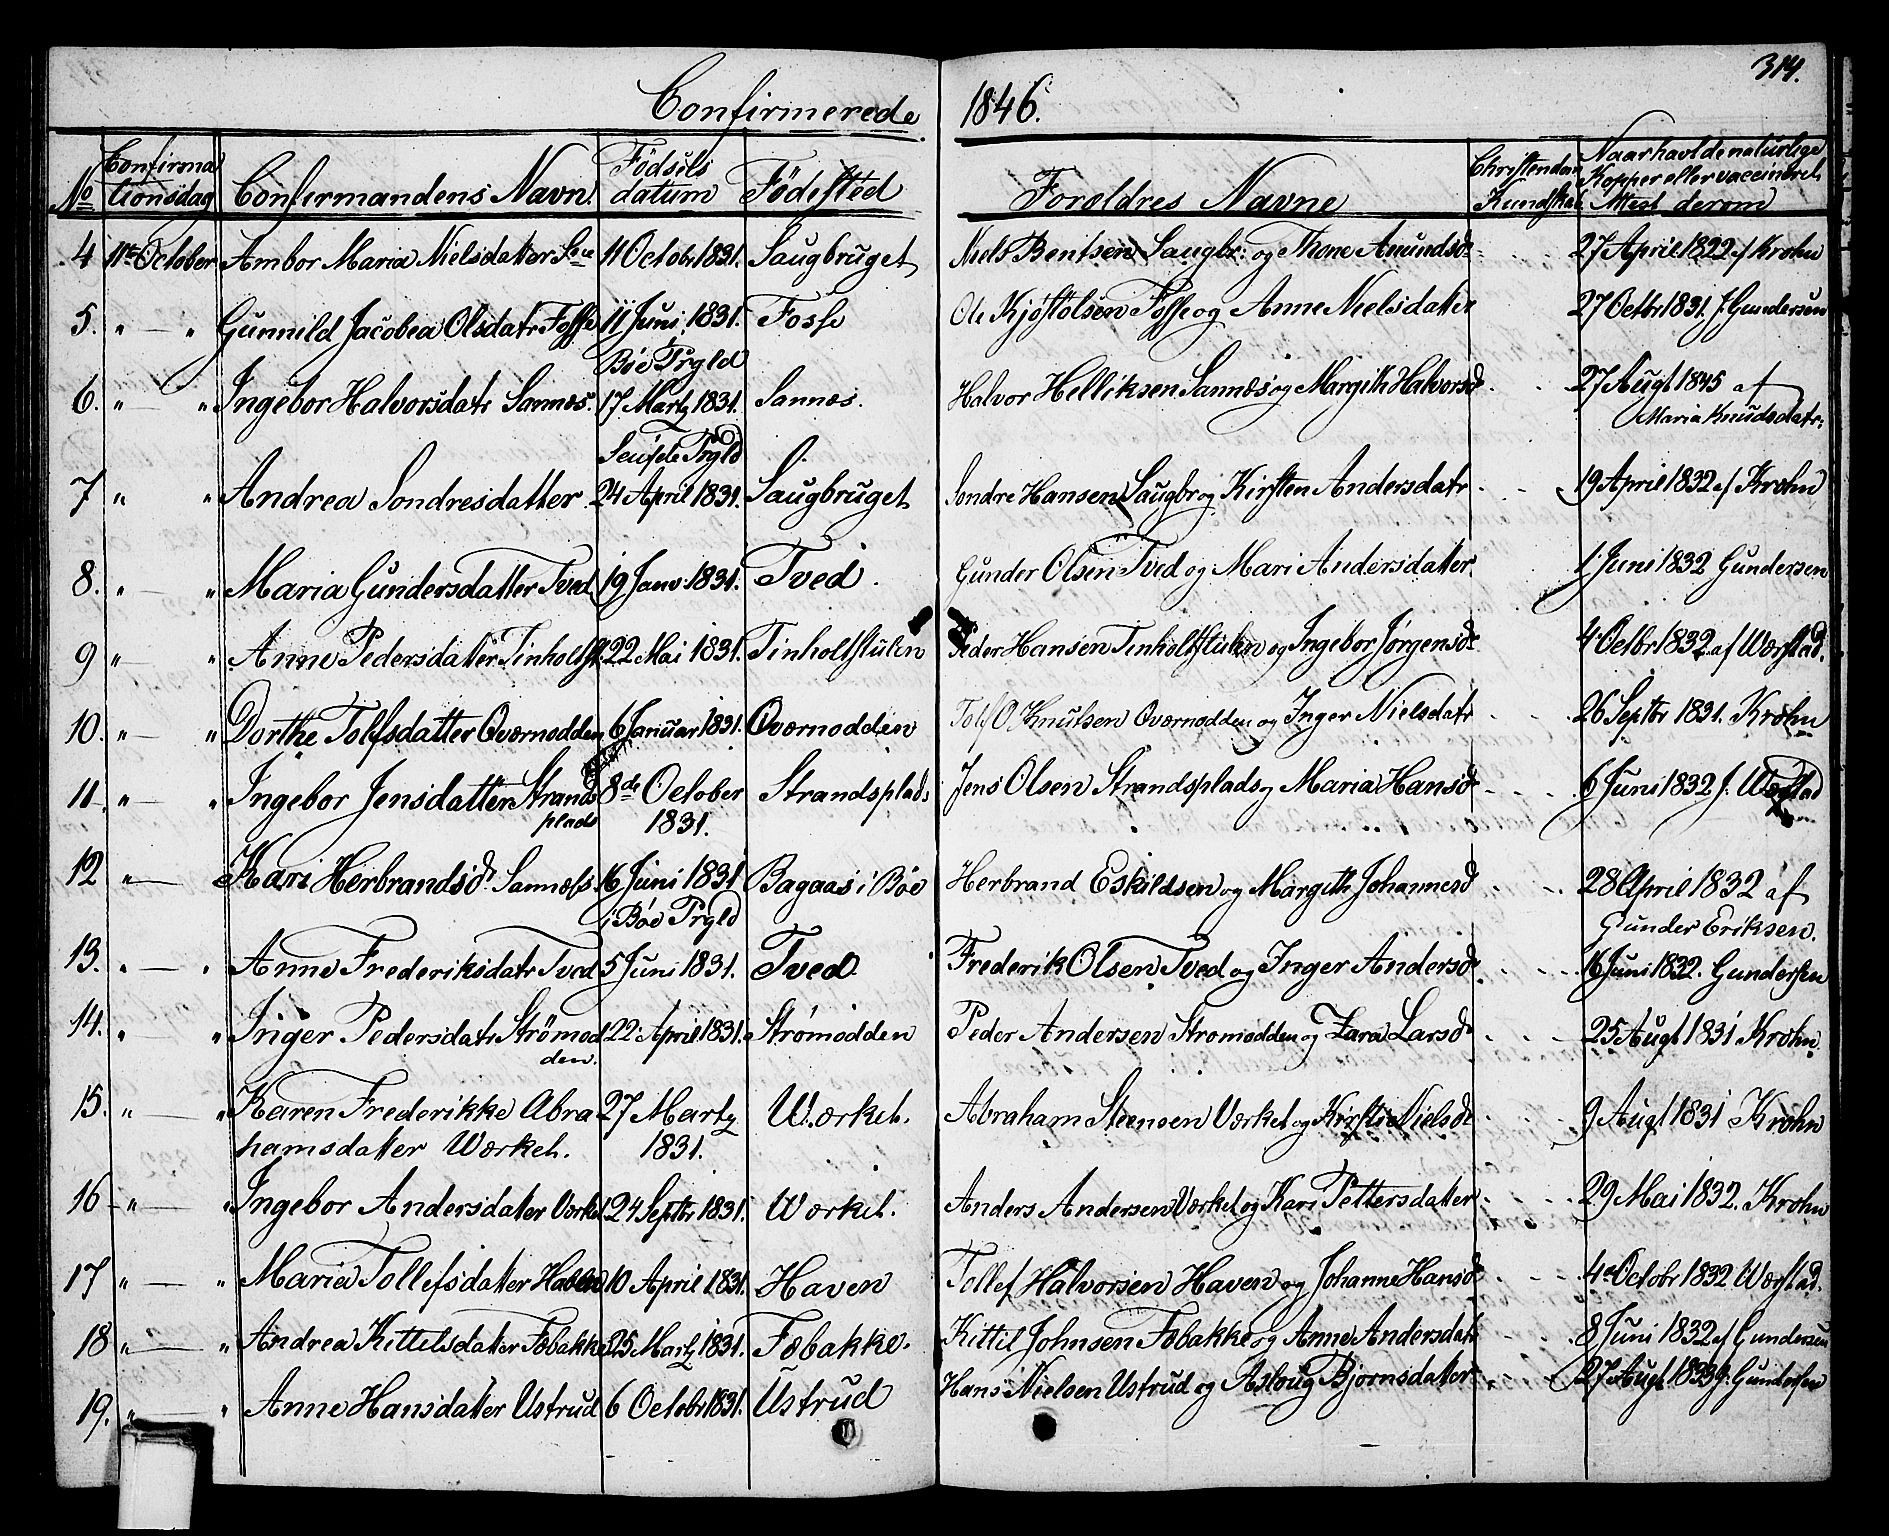 314.
Confirmerede 1846.
No Confirmationsdag Confirmandens Navn. Födsels datum Födested Foreldres Navne Christendoms Kundskab Naar havt de naturlige Kopper eller vaccineret Attest derom
4 11te October Ambor Maria Nielsdatter 11 Octobr 1831. Saugbruget Niels Bentsen Saugbr: og Thone Amundsd: 27 April 1822 af Krohn
5. " — " Gunnild Jacobea Olsdatr Fosse 11 Juni 1831. Fosse Ole Kjøstolsen Fosse og Anne Nielsdatter 27 Octbr 1831. f. Gundersen
Bøe Prgld
6. " — " Ingebor Halvorsdatr Sannæs. 17 Martz 1831. Sannæs. Halvor Helliksen Sannæs og Margith Halvorsd. 27 Augt 1845 af
Maria Knudsdatr:
Seufde Prgld
7 " " Andrea Sondresdatter 24 April 1831. Saugbruget Sondre Hansen Saugbr og Kirsten Andersdatr 19 April 1832 af Krohn
8. " — " Maria Gundersdatter Tved 19 Janv. 1831. Tved. Gunder Olsen Tved og Mari Andersdatter 1 Juni 1832 Gundersen
9 " — " Anne Pedersdatter Tinholtst. 22 Mai 1831. Tinholtstulen Peder Hansen Tinholtstulen og Ingebor Jørgensd. 4 Octbr 1832 af Wærstad.
10. " — " Dorthe Tolfsdatter Oværnodden 6 Januar 1831. Oværnodden Tolf O Knutsen Oværnodden og Inger Nielsdatr 26 Septbr 1831. Krohn
11. " — " Ingebor Jensdatter Strands 8de October Strandsplads Jens Olsen Strandsplads og Maria Hansd 6 Juni 1832 f. Wærstad
plads 1831.
12 " — Kari Herbrandsd. Sannæss. 16 Juni 1831 Bagaas i Bøe Herbrand Eskildsen og Margith Johannesd 28 April 1832 af
i Bøe Prgld Gunder Eriksen.
13. " — " Anne Frederiksdatr Tved 5 Juni 1831. Tved. Frederik Olsen Tved og Inger Andersd. 16 Juni 1832. Gundersen
14. " — " Inger Pedersdatr Strömod 22 April 1831. Strømodden Peder Andersen Stromodden og Zara Larsd 25 Augt 1831 Krohn
den.
15. " — " Karen Frederikke Abra 27 Martz Wærket. Abraham Steensen Værket og Kirsti Nielsd 9 Augt 1831 Krohn
hamsdatter Wærket. 1831.
16 — " — " Ingebor Andersdatter Værke 24 Septbr 1831. Wærket. Anders Andersen Værket og Kari Pettersdatter 29 Mai 1832. Krohn
17 " — " Maria Tollefsdatter Haven 10 April 1831. Haven Tollef Halvorsen Haven og Johanne Hansd 4de Octobr 1832 Wærstad.
18 " — " Andrea Kittilsdatter Fæbakke 25 Martz 1831. Fæbakke. Kittil Johnsen Fæbakke og Anne Andersdatr 8 Juni 1832 af Gundersen
19. " — " Anne Hansdatter Ustrud 6 Octobr 1831. Ustrud Hans Nielsen Ustrud og Asloug Bjornsdatter 27 Augt Gundersen